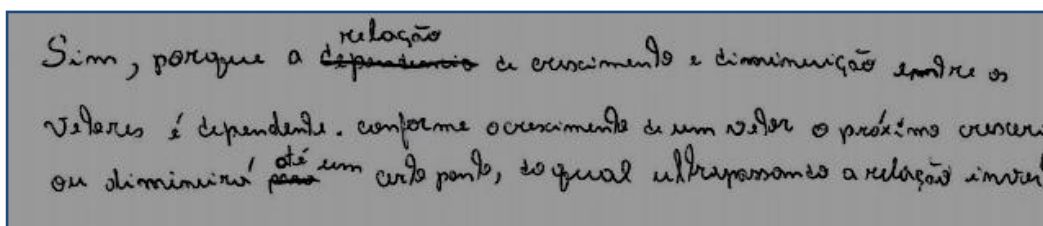 Sim, porque a relação de crescimento e diminuição entre os
valores é dependente. conforme o crescimento de um valor o próximo
ou diminuirá até um certo ponto, do qual ultrapassando a relação